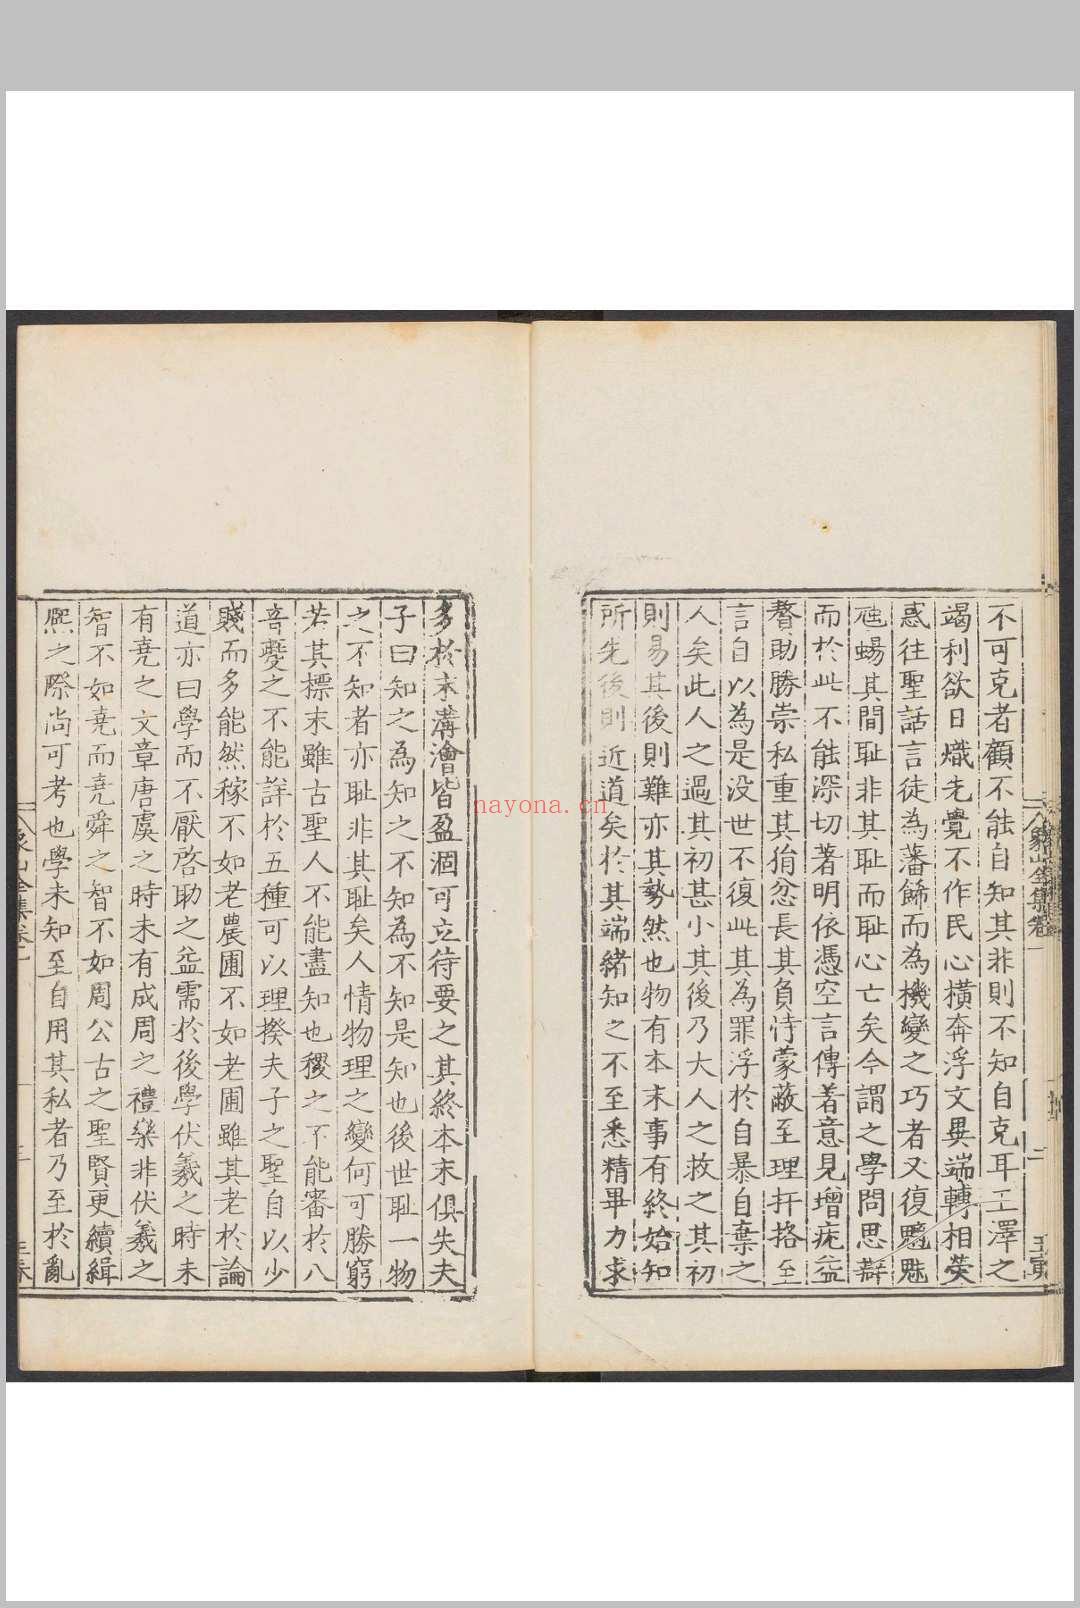 不可克者顧不能自知其非則不知自克耳王澤之
竭利欲日熾先覺不作民心橫奔浮文異端轉相熒
惑往聖話言徒為藩飾而為機變之巧者又復魑魅
虺蜴其間恥非其恥而恥心亡矣今謂之學問思辯
而於此不能深切著明依憑空言傳著意見增疣益
贅助勝崇私重其狷忿長其負恃蒙蔽至理扞挌至
言自以為是没世不復此其為罪浮於自暴自棄之
人矣此人之過其初甚小其後乃大人之救之其初
則易其後則難亦其勢然也物有本末事有終始知
所先後則近道矣於其端緒知之不至悉精畢力求
多於末溝澮皆盈涸可立待要之其終本末俱失夫
子曰知之為知之不知為不知是知也後世耻一物
之不知者亦耻非其耻矣人情物理之變何可勝窮
若其標末雖古聖人不能盡知也稷之不能審於八
音夔之不能詳於五種可以理揆夫子之聖自以少
賤而多能然稼不如老農圃不如老圃雖其老於論
道亦曰學而不厭啓助之益需於後學伏羲之時未
有堯之文章唐虞之時未有成周之禮樂非伏羲之
智不如堯而堯舜之智不如周公古之聖賢更續緝
熙之際尚可考也學未知至自用其私者乃至於亂
象山全集卷一
二
象山全集卷一
三
nayona.cn